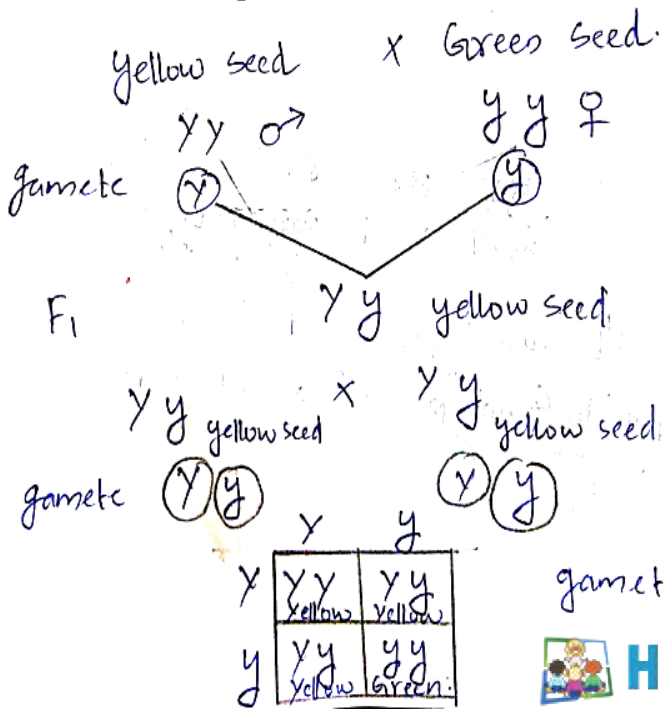 yellow seed x Green seed.
YY ♂ yy ♀
gamete Y y
F1 Yy yellow seed
Yy yellow seed x Yy yellow seed
gamete Y y Y y
Y y
Y YY Yellow Yy Yellow gamet
y Yy Yellow yy Green.
H